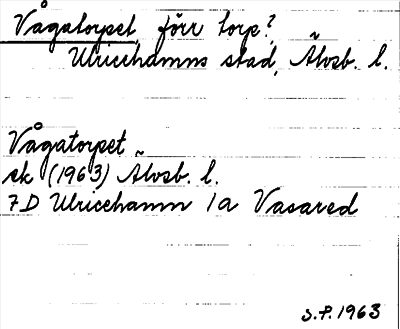 Vågatorpet, förr torp?
Ulricehamns stad, Älvsb. l.
Vågatorpet
ek (1963) Älvsb. l.
7D Ulricehamn 1a Vasared
S.P. 1963